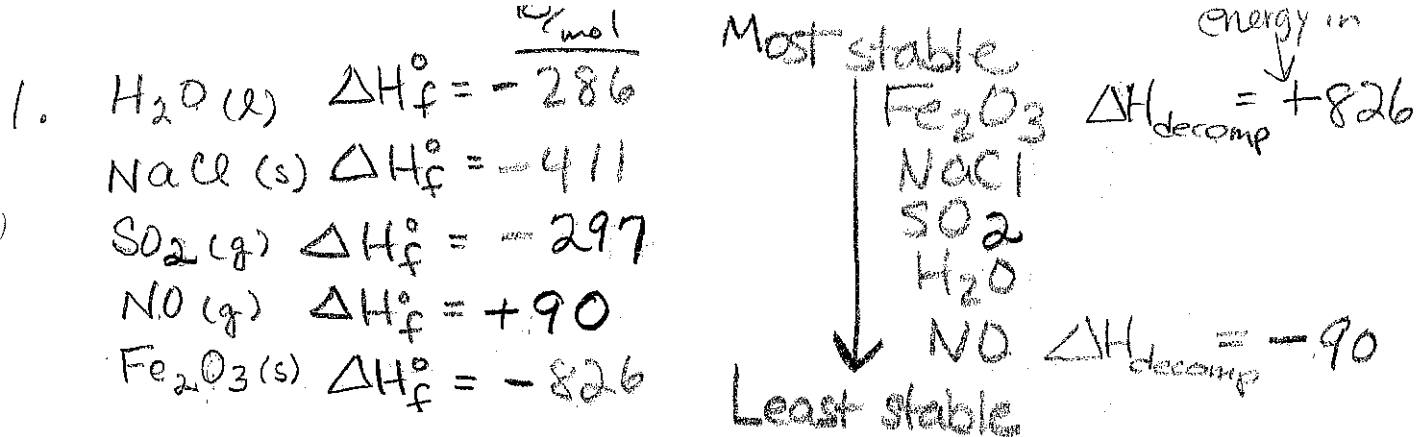 kJ/mol
1. H₂O (l) ΔH°f = - 286
NaCl (s) ΔH°f = - 411
SO₂ (g) ΔH°f = - 297
NO (g) ΔH°f = + 90
Fe₂O₃ (s) ΔH°f = - 826
Most stable
energy in
Fe₂O₃ ΔHdecomp = +826
NaCl
SO₂
H₂O
NO ΔHdecomp = - 90
Least stable